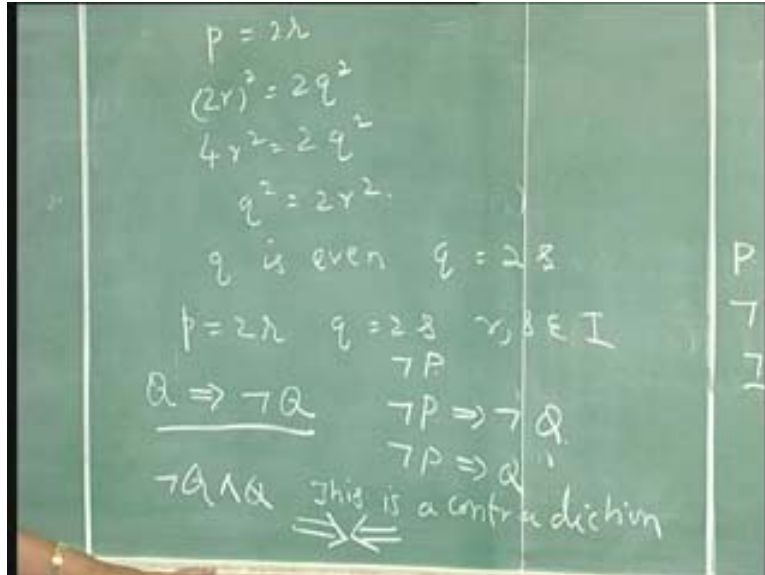 p = 2r
(2r)² = 2q²
4r² = 2q²
q² = 2r².
q is even q = 2s
p = 2r q = 2s r, s ∈ I
¬P
Q ⇒ ¬Q ¬P ⇒ ¬Q.
¬P ⇒ Q
¬Q ∧ Q This is a contradiction
⇒⇐
P
¬
¬